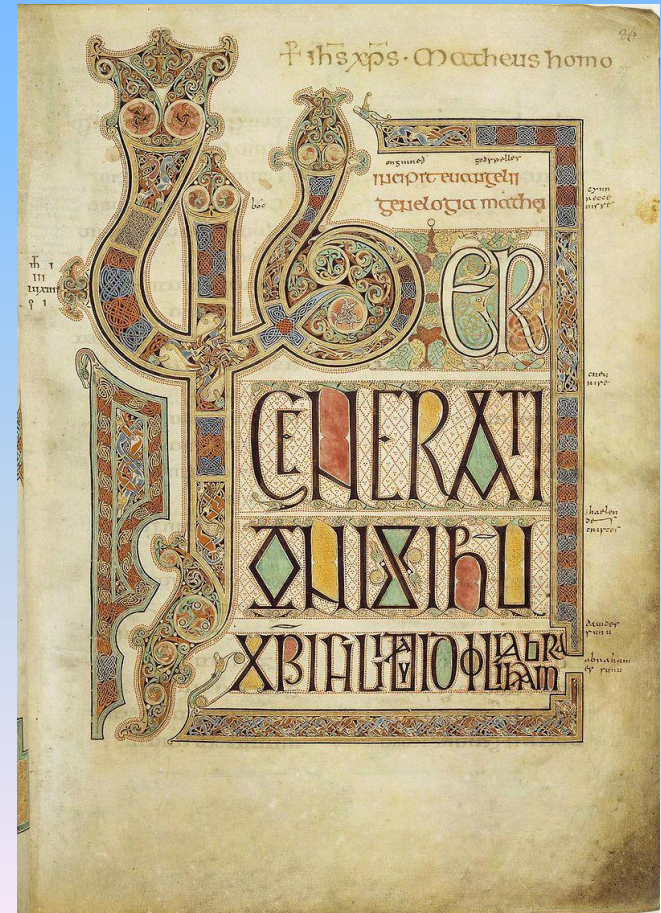 + ihs xps · Matheus homo
onginneð godspelles
incipit euangelii
genelogia mathei
LIBER
bóc
GENERATI
ONIS IHU
XPI FILII DAVID FILII ABRAHAM
cynn
recce
nisse
cneu
rise
haelen
des
cristes
dauides
sunu
abraham
es sunu